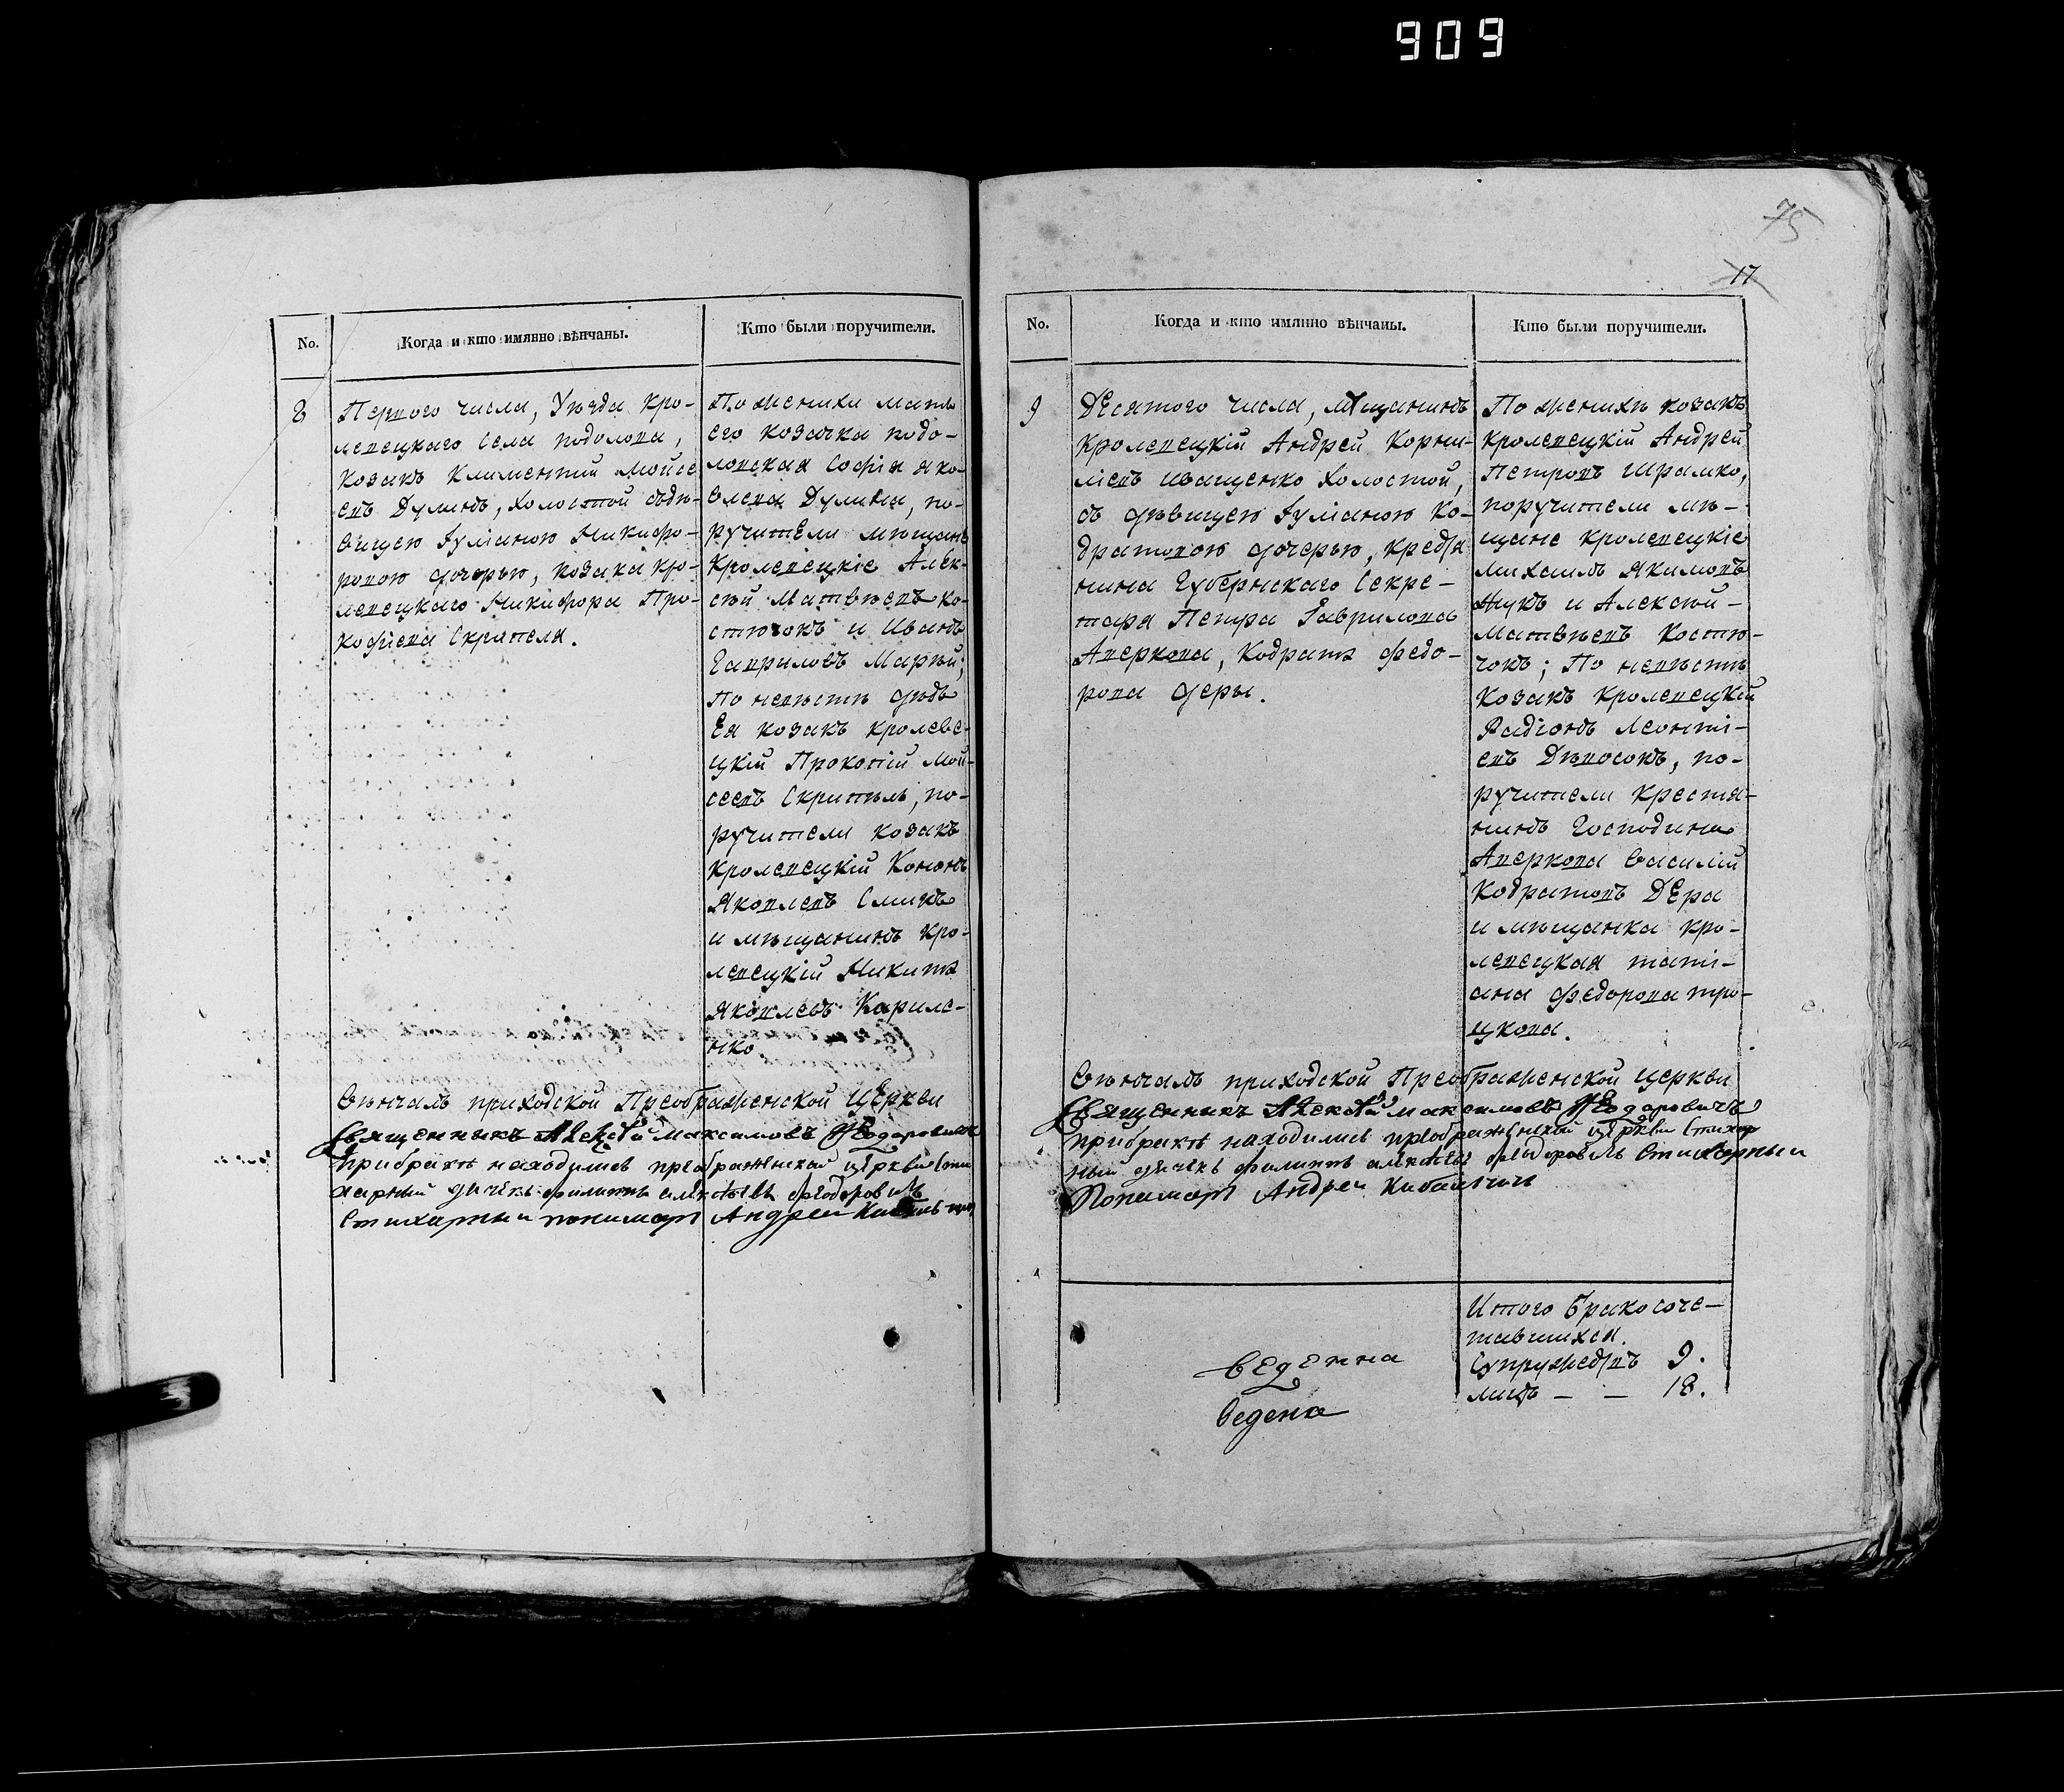 909
75
17
No.
Когда и кто имянно вѣнчаны.
Кто были поручители.
8
Первого числа, Уѣзда Кро-
левецкаго Села подолова,
козакъ Климентий Мойсе
евъ Дулинъ, холостой съ дѣ-
вицею Іуліаною Никифо-
ровою дочерью, козака кро-
левецкаго Никифора Про-
кофіева Скрипеля.
По женихи мать
его козачка подо-
ловская Софія Яко-
влева Дулина, по-
ручители мѣщане
Кролевецкіе Алек-
сѣй Матвѣевъ Ко-
стючокъ и Иванъ
Гавриловъ Марѣй;
По невѣсти дѣдъ
Ея козакъ кролеве-
цкій Прокопій Мой-
сеевъ Скрипѣль, по-
ручители козакъ
Кролевецкій Кононъ
Яковлевъ Сликъ
и мѣщанинъ кро-
левецкій Никита
Яковлевъ Кариле-
нко.
Вѣнчалъ приходской Преображенской Церкви
Священникъ Алексѣй Максимовъ Федоровичъ
при бракѣ находились преображенской церкви сти
харный дячекъ филиппъ алексѣевъ федоровичъ
Стихарный пономарь Андреи
No.
Когда и кто имянно вѣнчаны.
Кто были поручители.
9
Десятого числа, Мѣщанинъ
Кролевецкій Андрей Корни-
ліевъ Иващенко Холостой,
съ дѣвицею Іуліаною Ко-
дратовою дочерью, крестя
нина Губернскаго Секре-
таря Петра Гаврилова
Аверкова, Кодрата Федо-
рова Деры.
По женихѣ козакъ
кролевецкій Андрей
Петровъ Шрамко,
поручители мѣ-
щане кролевецкіе
Михаилъ Якимовъ
Жукъ и Алексѣй
Матвѣевъ Костю-
чокъ; По невѣсти
козакъ кролевецкій
Радіонъ Леонті-
евъ Дѣвосокъ, по-
ручители крестя-
нинъ Господина
Аверкова Василій
Кодратовъ Дера
и мѣщанка кро-
левецкая Таті-
ана Федорова тро-
цкова.
Вѣнчалъ приходской Преображенской церкви
Священникъ Алексѣй Максимовъ Федоровичъ
при бракѣ находились преображенской церкви стихар
ный дячекъ филиппъ алексѣевъ федоровичъ Стихарныи
Пономарь Андреи Кибальчич
Итого бракосоче-
тавшихся.
Супружествъ 9.
лицъ — — 18.
веденна
ведена